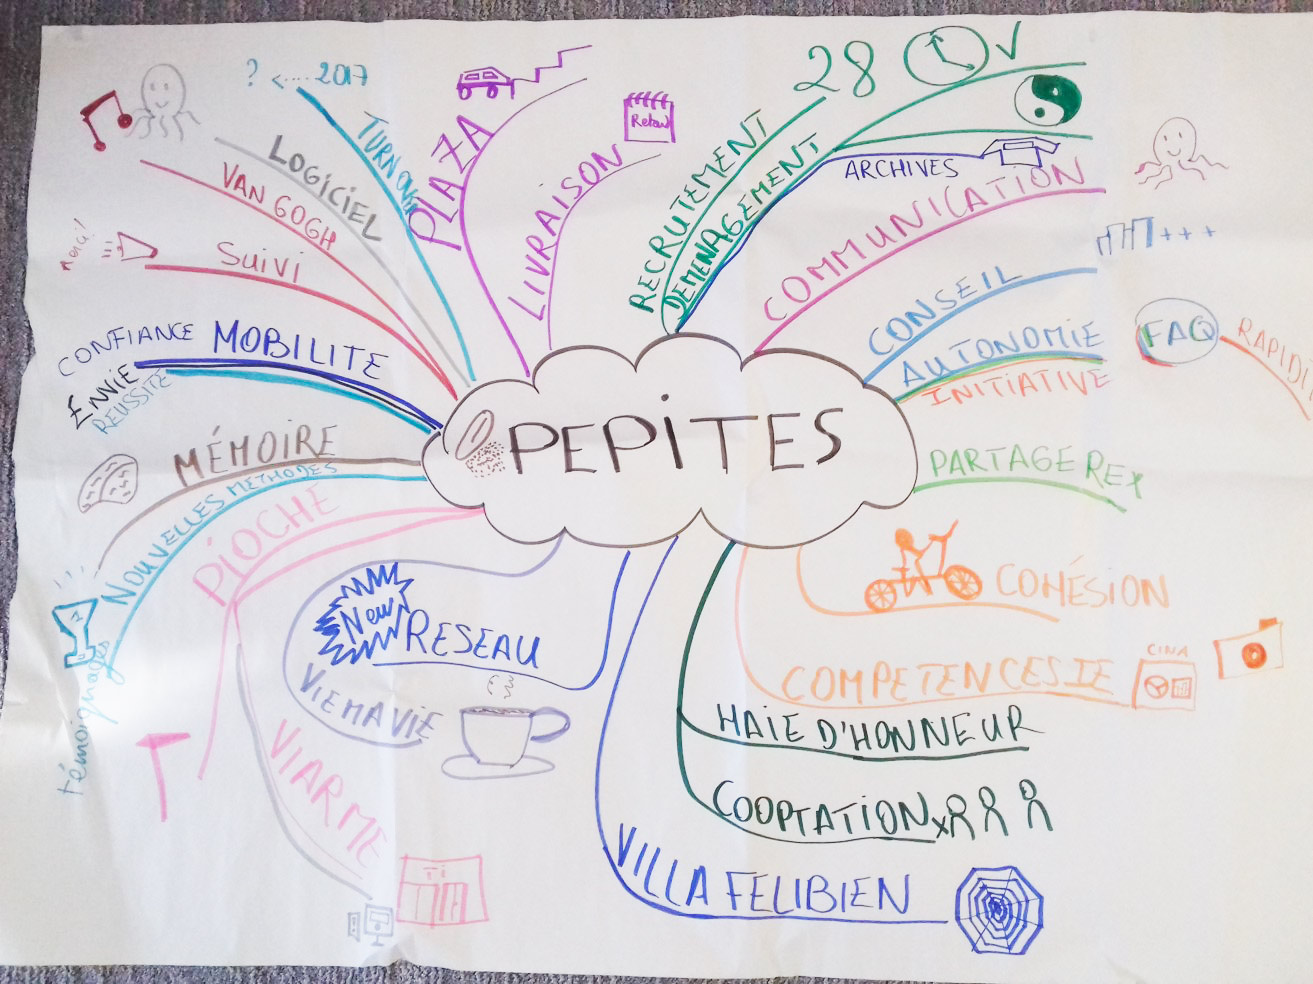 PEPITES
? <.... 2017
LOGICIEL
VAN GOGH
Suivi
CONFIANCE
MOBILITE
ENVIE
REUSSITE
MÉMOIRE
NOUVELLES METHODES
1
témoignages
PIOCHE
VIARME
New
RESEAU
VIE MA VIE
PLAZA
LIVRAISON
RECRUTEMENT
28
DEMENAGEMENT
ARCHIVES
COMMUNICATION
CONSEIL
+++
AUTONOMIE
INITIATIVE
FAQ
PARTAGE REX
COHÉSION
COMPETENCES IE
CINA
HAIE D'HONNEUR
COOPTATION x
VILLA FELIBIEN